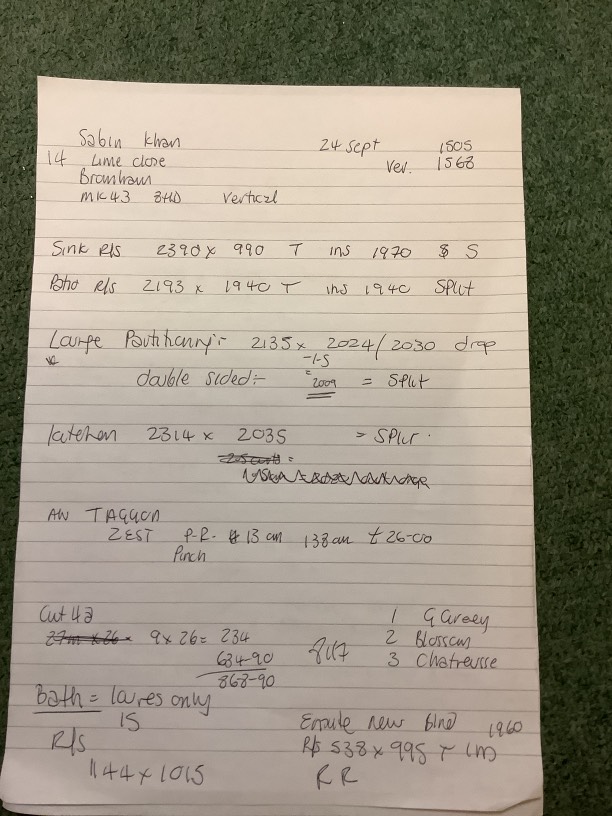 Sabin Khan 24 Sept 1505
14 Lime close Ver. 1568
Bromham
MK43 8HD Vertical
Sink R/s 2390 x 990 T ins 1970 $ S
Patio R/s 2193 x 1940 T ins 1940 Split
Lounge 2135 x 2024/2030 drop
-15
double sided:- = 2009 = Split
kitchen 2314 x 2035 = Split.
AW TAGGON
ZEST P.R. 13 cm 138 cm £26-00
Pinch
Cut 42 1 G Green
27m x 26 = 9 x 26 = 234 2 Blossom
634-90 3 Chatreusse
868-90
Bath = louvres only
15 new blind 1960
R/s R/s 538 x 995 T (m)
1144 x 1015 R R